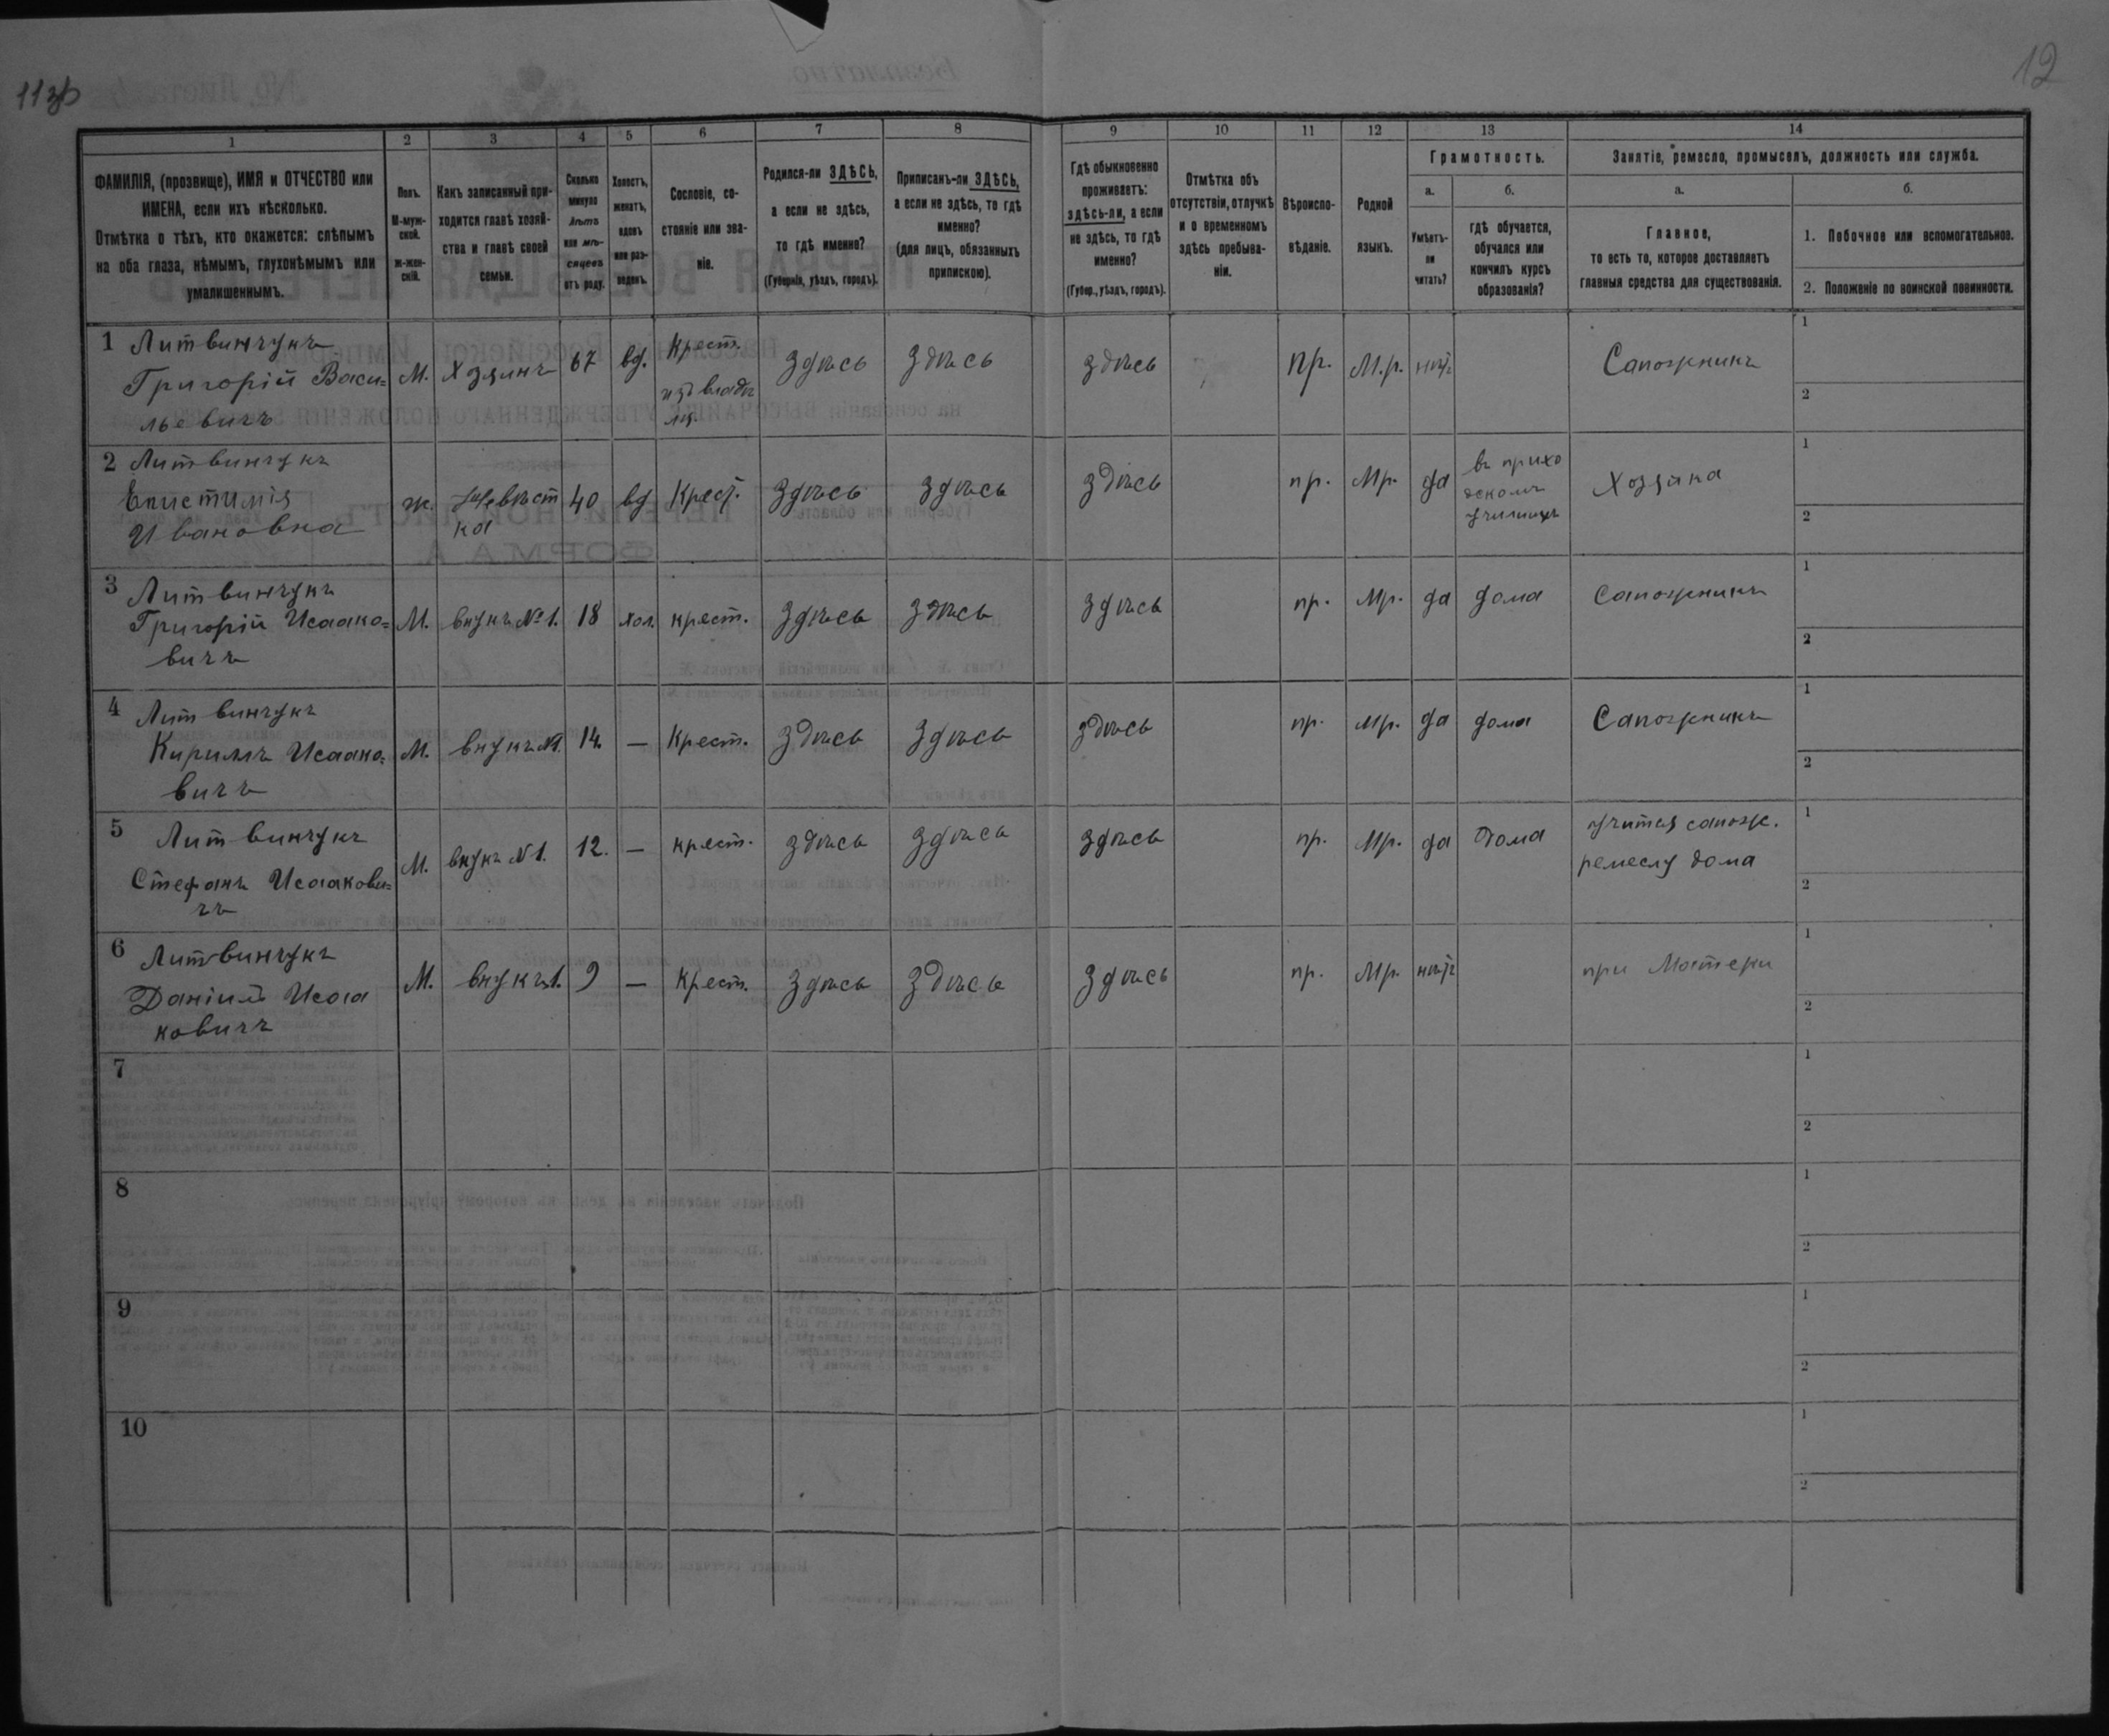 11 зв
12
1 2 3 4 5 6 7 8 9 10 11 12 13 14
ФАМИЛІЯ, (прозвище), ИМЯ и ОТЧЕСТВО или
ИМЕНА, если ихъ нѣсколько.
Отмѣтка о тѣхъ, кто окажется: слѣпымъ
на оба глаза, нѣмымъ, глухонѣмымъ или
умалишеннымъ.
Полъ.
М-муж-
ской.
ж-жен-
скій.
Какъ записанный при-
ходится главѣ хозяй-
ства и главѣ своей
семьи.
Сколько
минуло
лѣтъ
или мѣ-
сяцевъ
отъ роду.
Холостъ,
женатъ,
вдовъ
или раз-
веденъ.
Сословіе, со-
стояніе или зва-
ніе.
Родился-ли ЗДѢСЬ,
а если не здѣсь,
то гдѣ именно?
(Губернія, уѣздъ, городъ).
Приписанъ-ли ЗДѢСЬ,
а если не здѣсь, то гдѣ
именно?
(для лицъ, обязанныхъ
припискою).
Гдѣ обыкновенно
проживаетъ:
здѣсь-ли, а если
не здѣсь, то гдѣ
именно?
(Губер., уѣздъ, городъ).
Отмѣтка объ
отсутствіи, отлучкѣ
и о временномъ
здѣсь пребыва-
ніи.
Вѣроиспо-
вѣданіе.
Родной
языкъ.
Грамотность.
а.
Умѣетъ-
ли
читать?
б.
гдѣ обучается,
обучался или
кончилъ курсъ
образованія?
Занятіе, ремесло, промыселъ, должность или служба.
а.
Главное,
то есть то, которое доставляетъ
главныя средства для существованія.
б.
1. Побочное или вспомогательное.
2. Положеніе по воинской повинности.
1 Литвинчукъ
Григорій Васи=
льевичъ
М.
Хозяинъ
67
вд.
Крест.
изъ владѣ
лц.
здѣсь
здѣсь
здѣсь
пр.
М.р.
нѣтъ
Сапожникъ
1
2
2 Литвинчукъ
Епистимія
Ивановна
ж.
Невѣст
ка
40
вд
Крест.
здѣсь
здѣсь
здѣсь
пр.
Мр.
да
въ прихо
дскомъ
училищѣ
Хозяйка
1
2
3 Литвинчукъ
Григорій Исаако=
вичъ
М.
внукъ №1.
18
хол.
крест.
здѣсь
здѣсь
здѣсь
пр.
Мр.
да
дома
Сапожникъ
1
2
4 Литвинчукъ
Кириллъ Исаако=
вичъ
М.
внукъ №1.
14.
—
Крест.
здѣсь
здѣсь
здѣсь
пр.
Мр.
да
дома
Сапожникъ
1
2
5 Литвинчукъ
Стефанъ Исаакови=
чъ
М.
внукъ №1.
12.
—
крест.
здѣсь
здѣсь
здѣсь
пр.
Мр.
да
дома
учится сапож.
ремеслу дома
1
2
6 Литвинчукъ
Даніилъ Исаа
ковичъ
М.
внукъ 1.
9
—
Крест.
здѣсь
здѣсь
здѣсь
пр.
Мр.
нѣтъ
при Матери
1
2
7
1
2
8
1
2
9
1
2
10
1
2